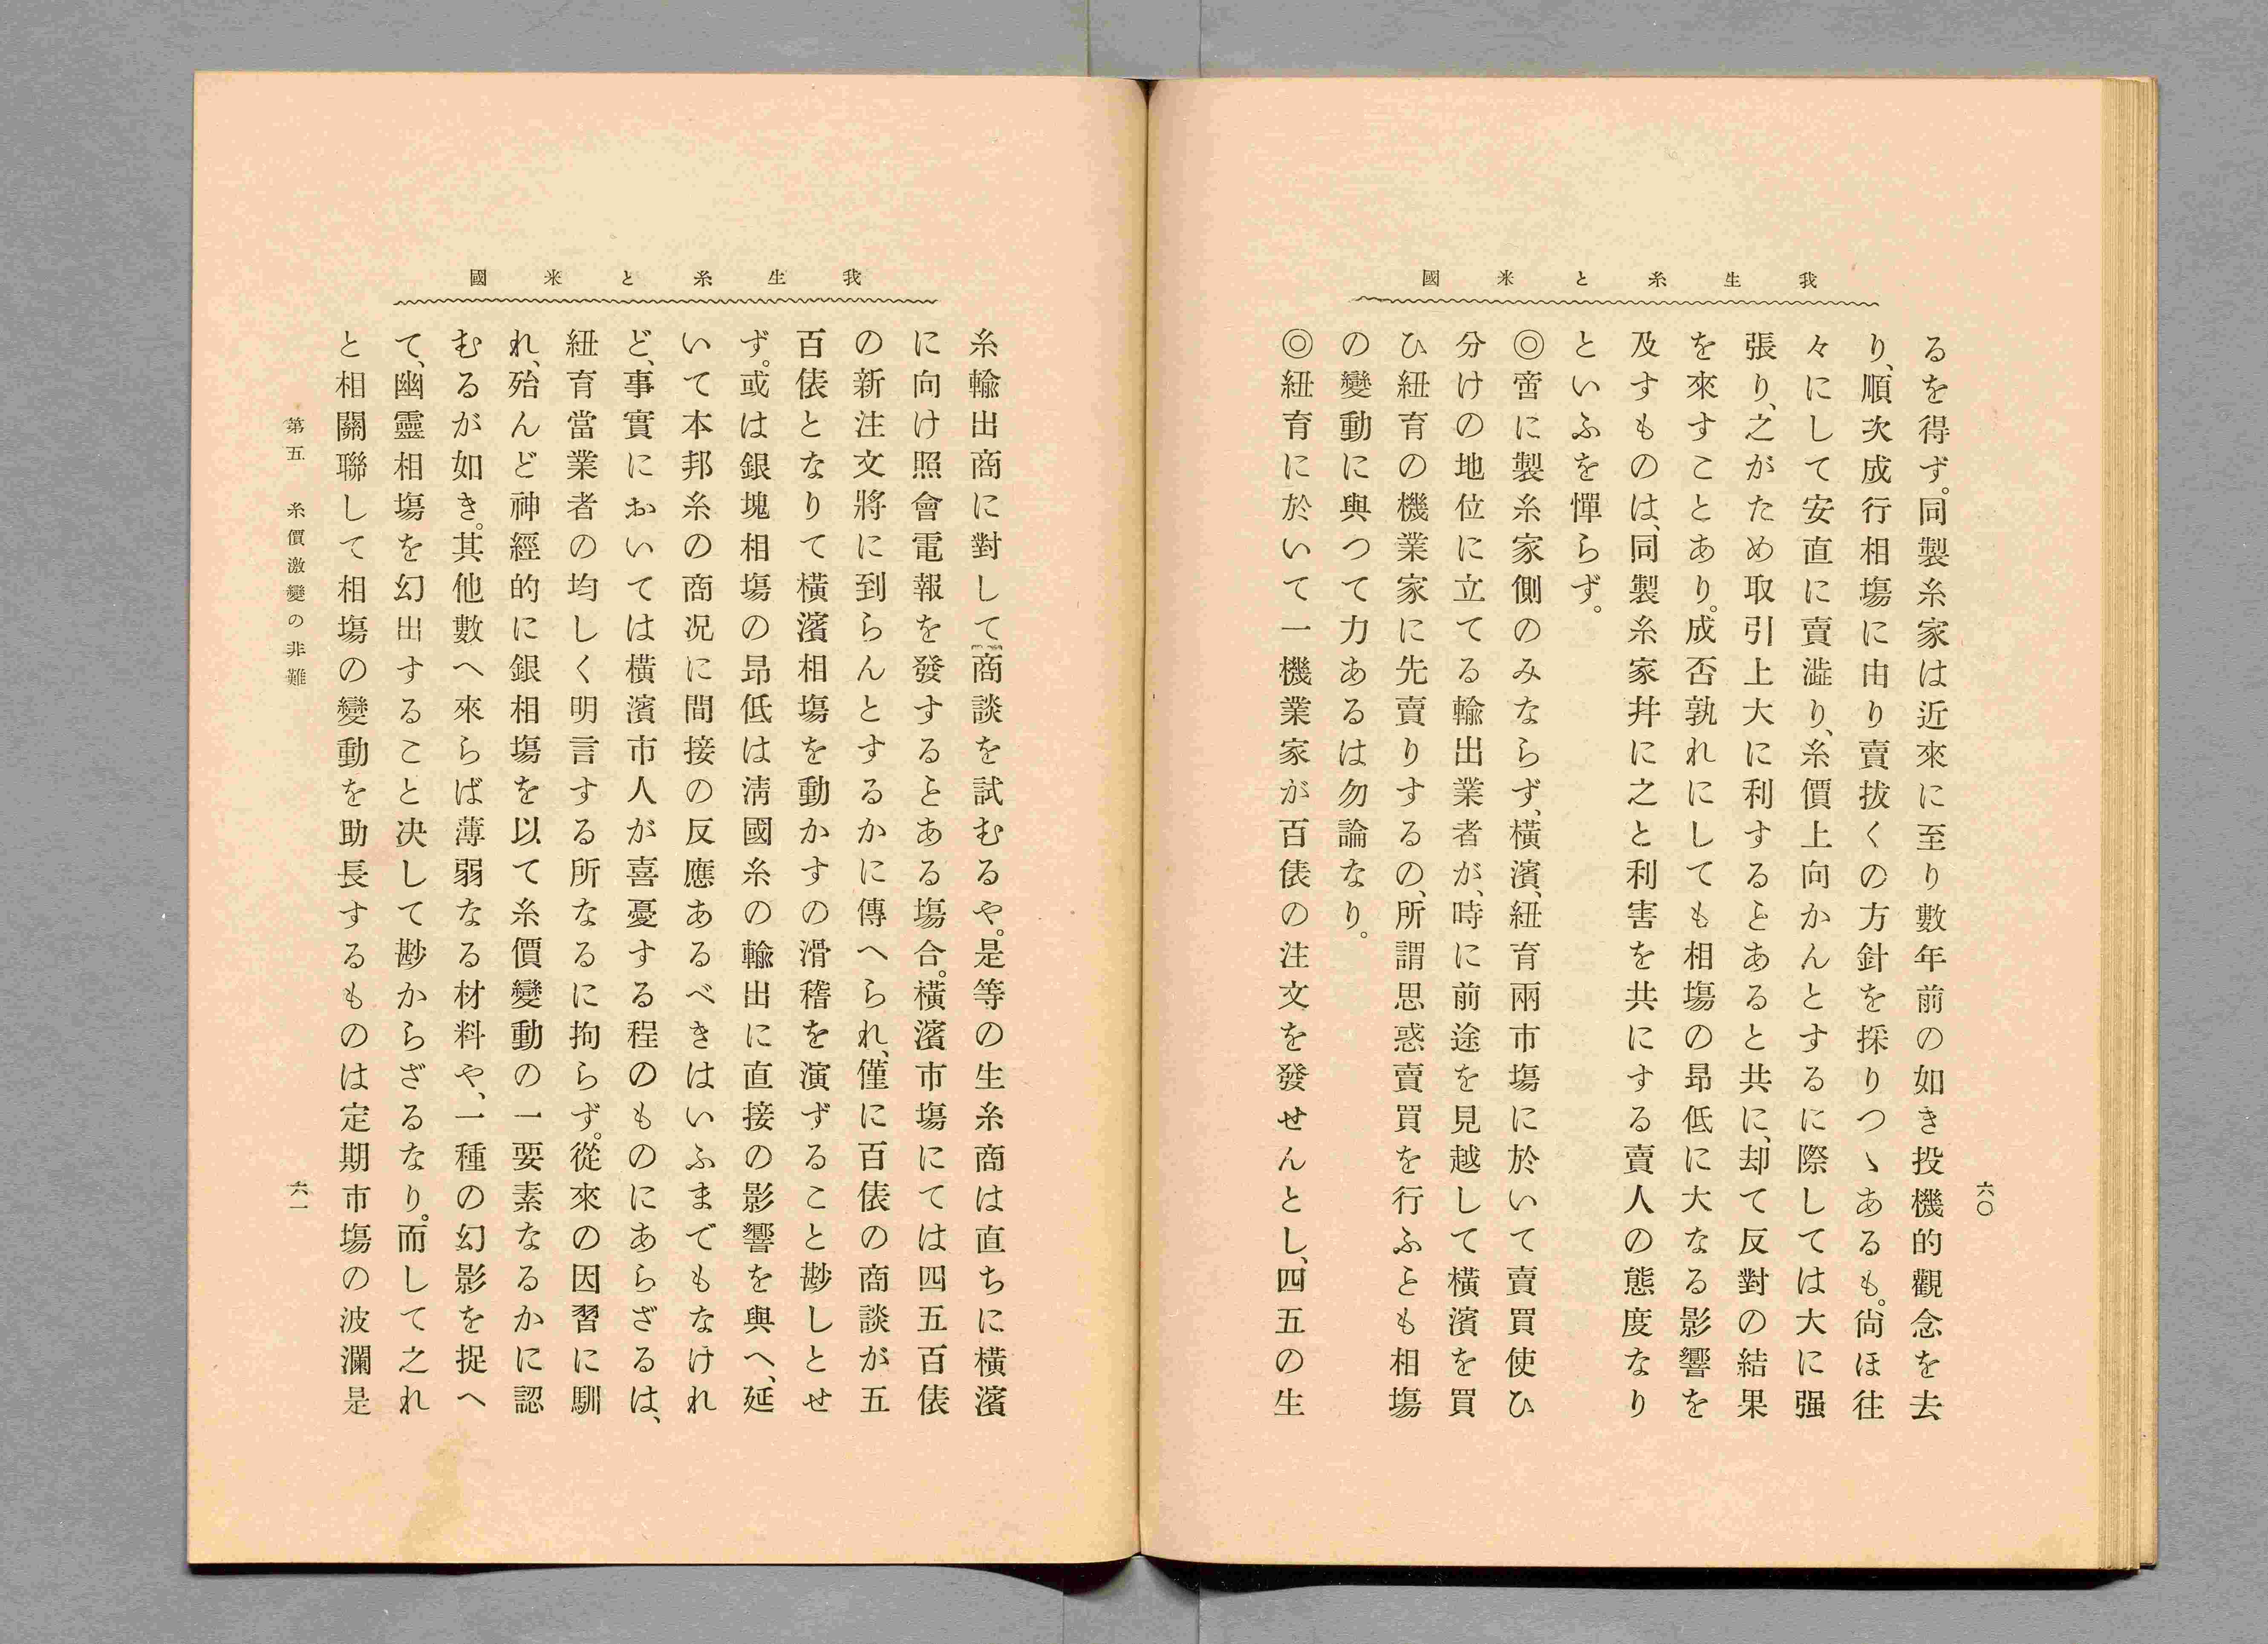 我生糸と米國
六〇
るを得ず。同製糸家は近來に至り數年前の如き投機的觀念を去
り、順次成行相塲に由り賣拔くの方針を採りつゝあるも。尙ほ往
々にして安直に賣澁り、糸價上向かんとするに際しては大に强
張り、之がため取引上大に利するとあると共に、却て反對の結果
を來すことあり。成否孰れにしても相塲の昻低に大なる影響を
及すものは、同製糸家幷に之と利害を共にする賣人の態度なり
といふを憚らず。
◎啻に製糸家側のみならず、橫濱、紐育兩市塲に於いて賣買使ひ
分けの地位に立てる輸出業者が、時に前途を見越して橫濱を買
ひ紐育の機業家に先賣りするの、所謂思惑賣買を行ふとも相塲
の變動に與つて力あるは勿論なり。
◎紐育に於いて一機業家が百俵の注文を發せんとし、四五の生
我生糸と米國
糸輸出商に對して商談を試むるや。是等の生糸商は直ちに橫濱
に向け照會電報を發するとある塲合。橫濱市塲にては四五百俵
の新注文將に到らんとするかに傳へられ、僅に百俵の商談が五
百俵となりて橫濱相塲を動かすの滑稽を演ずること尠しとせ
ず。或は銀塊相塲の昻低は淸國糸の輸出に直接の影響を與へ、延
いて本邦糸の商况に間接の反應あるべきはいふまでもなけれ
ど、事實においては橫濱市人が喜憂する程のものにあらざるは、
紐育當業者の均しく明言する所なるに拘らず。從來の因習に馴
れ、殆んど神經的に銀相塲を以て糸價變動の一要素なるかに認
むるが如き。其他數へ來らば薄弱なる材料や、一種の幻影を捉へ
て、幽靈相塲を幻出すること决して尠からざるなり。而して之れ
と相關聯して相塲の變動を助長するものは定期市塲の波瀾是
第五　糸價激變の非難
六一